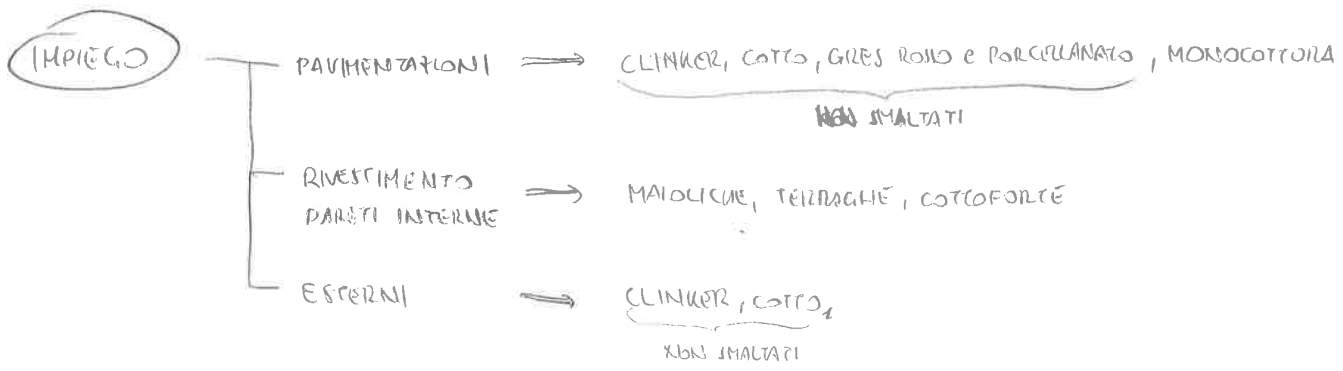 IMPIEGO
PAVIMENTAZIONI ⟹ CLINKER, COTTO, GRES ROSSO e PORCELLANATO, MONOCOTTURA
NON SMALTATI
RIVESTIMENTO
PARETI INTERNE ⟹ MAIOLICHE, TERRAGLIE, COTTOFORTE
ESTERNI ⟹ CLINKER, COTTO,
NON SMALTATI